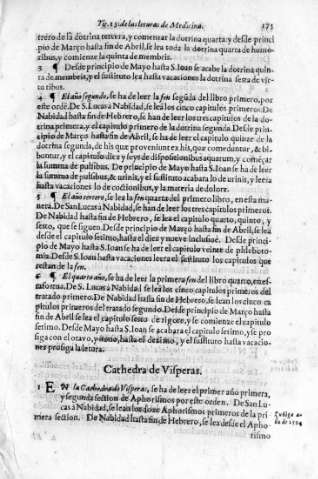 Tit.23. de las leturas de Medicina. 273
trero de la dotrina tercera, y comenzar la dotrina quarta: y desde principio de Março hasta fin de Abril, se lea toda la dotrina quarta de humoribus, y comience la quinta de membris.
3 ¶ Desde principio de Mayo hasta S. Ioan se acabe la dotrina quinta de membris, y el sustituto lea hasta vacaciones la dotrina sexta de virtutibus.
4 ¶ El año segundo, se ha de leer la fen segũda del libro primero, por este ordẽ. De S. Lucas a Nabidad, se leã los cinco capitulos primeros: De Nabidad hasta fin de Hebrero, se han de leer los tres capitulos de la dotrina primera, y el capitulo primero de la dotrina segunda. Desde principio de Março hasta fin de Abril, se ha de leer el capitulo quinze de la dotrina segunda, de his que proveniunt ex his, que comeduntur, & bibuntur, y el capitulo diez y seys de dispositionibus aquarum, y comẽçar la summa de pulsibus. De principio de Mayo hasta S. Ioan se ha de leer la summa de pulsibus, & urinis, y el sustituto acabara lo de urinis, y leera hasta vacaciones lo de coctionibus, y la materia de dolore.
5 ¶ El año tercero, se lea la fen quarta del primero libro, en esta manera. De San Lucas a Nabidad, se han de leer los tres capitulos primeros. De Nabidad hasta fin de Hebrero, se lea el capitulo quarto, quinto, y sexto, que se siguen. Desde principio de Março hasta fin de Abril, se lea desde el capitulo setimo, hasta el diez y nueve inclusivè. Desde principio de Mayo hasta S. Ioan se ha de leer el capitulo veinte de phlebotomia. Desde S. Ioan hasta vacaciones leera el sustituto los capitulos que restan de la fen.
6 ¶ El quarto año, se ha de leer la primera fen del libro quarto,
De S. Lucas a Nabidad se leã los cinco capitulos primeros del tratado primero. De Nabidad hasta fin de Hebrero, se lean los cinco capitulos primeros del tratado segundo. Desde principio de Março hasta fin de Abril se lea el capitulo sexto de rigore, y se comience el capitulo setimo. Desde Mayo hasta S. Ioan se acabara el capitulo setimo, y se prosiga con el otavo, y nono, hasta el decimo, y el sustituto hasta vacaciones prosiga la letura.
Cathedra de Visperas.
1 EN la Cathedra de Visperas, se ha de leer el primer año primera, y segunda section de Aphorismos por este orden. De San Lucas a Nabidad, se lean los doze Aphorismos primeros de la primera section. De Nabidad hasta fin de Hebrero, se lea desde el Apho-
rismo